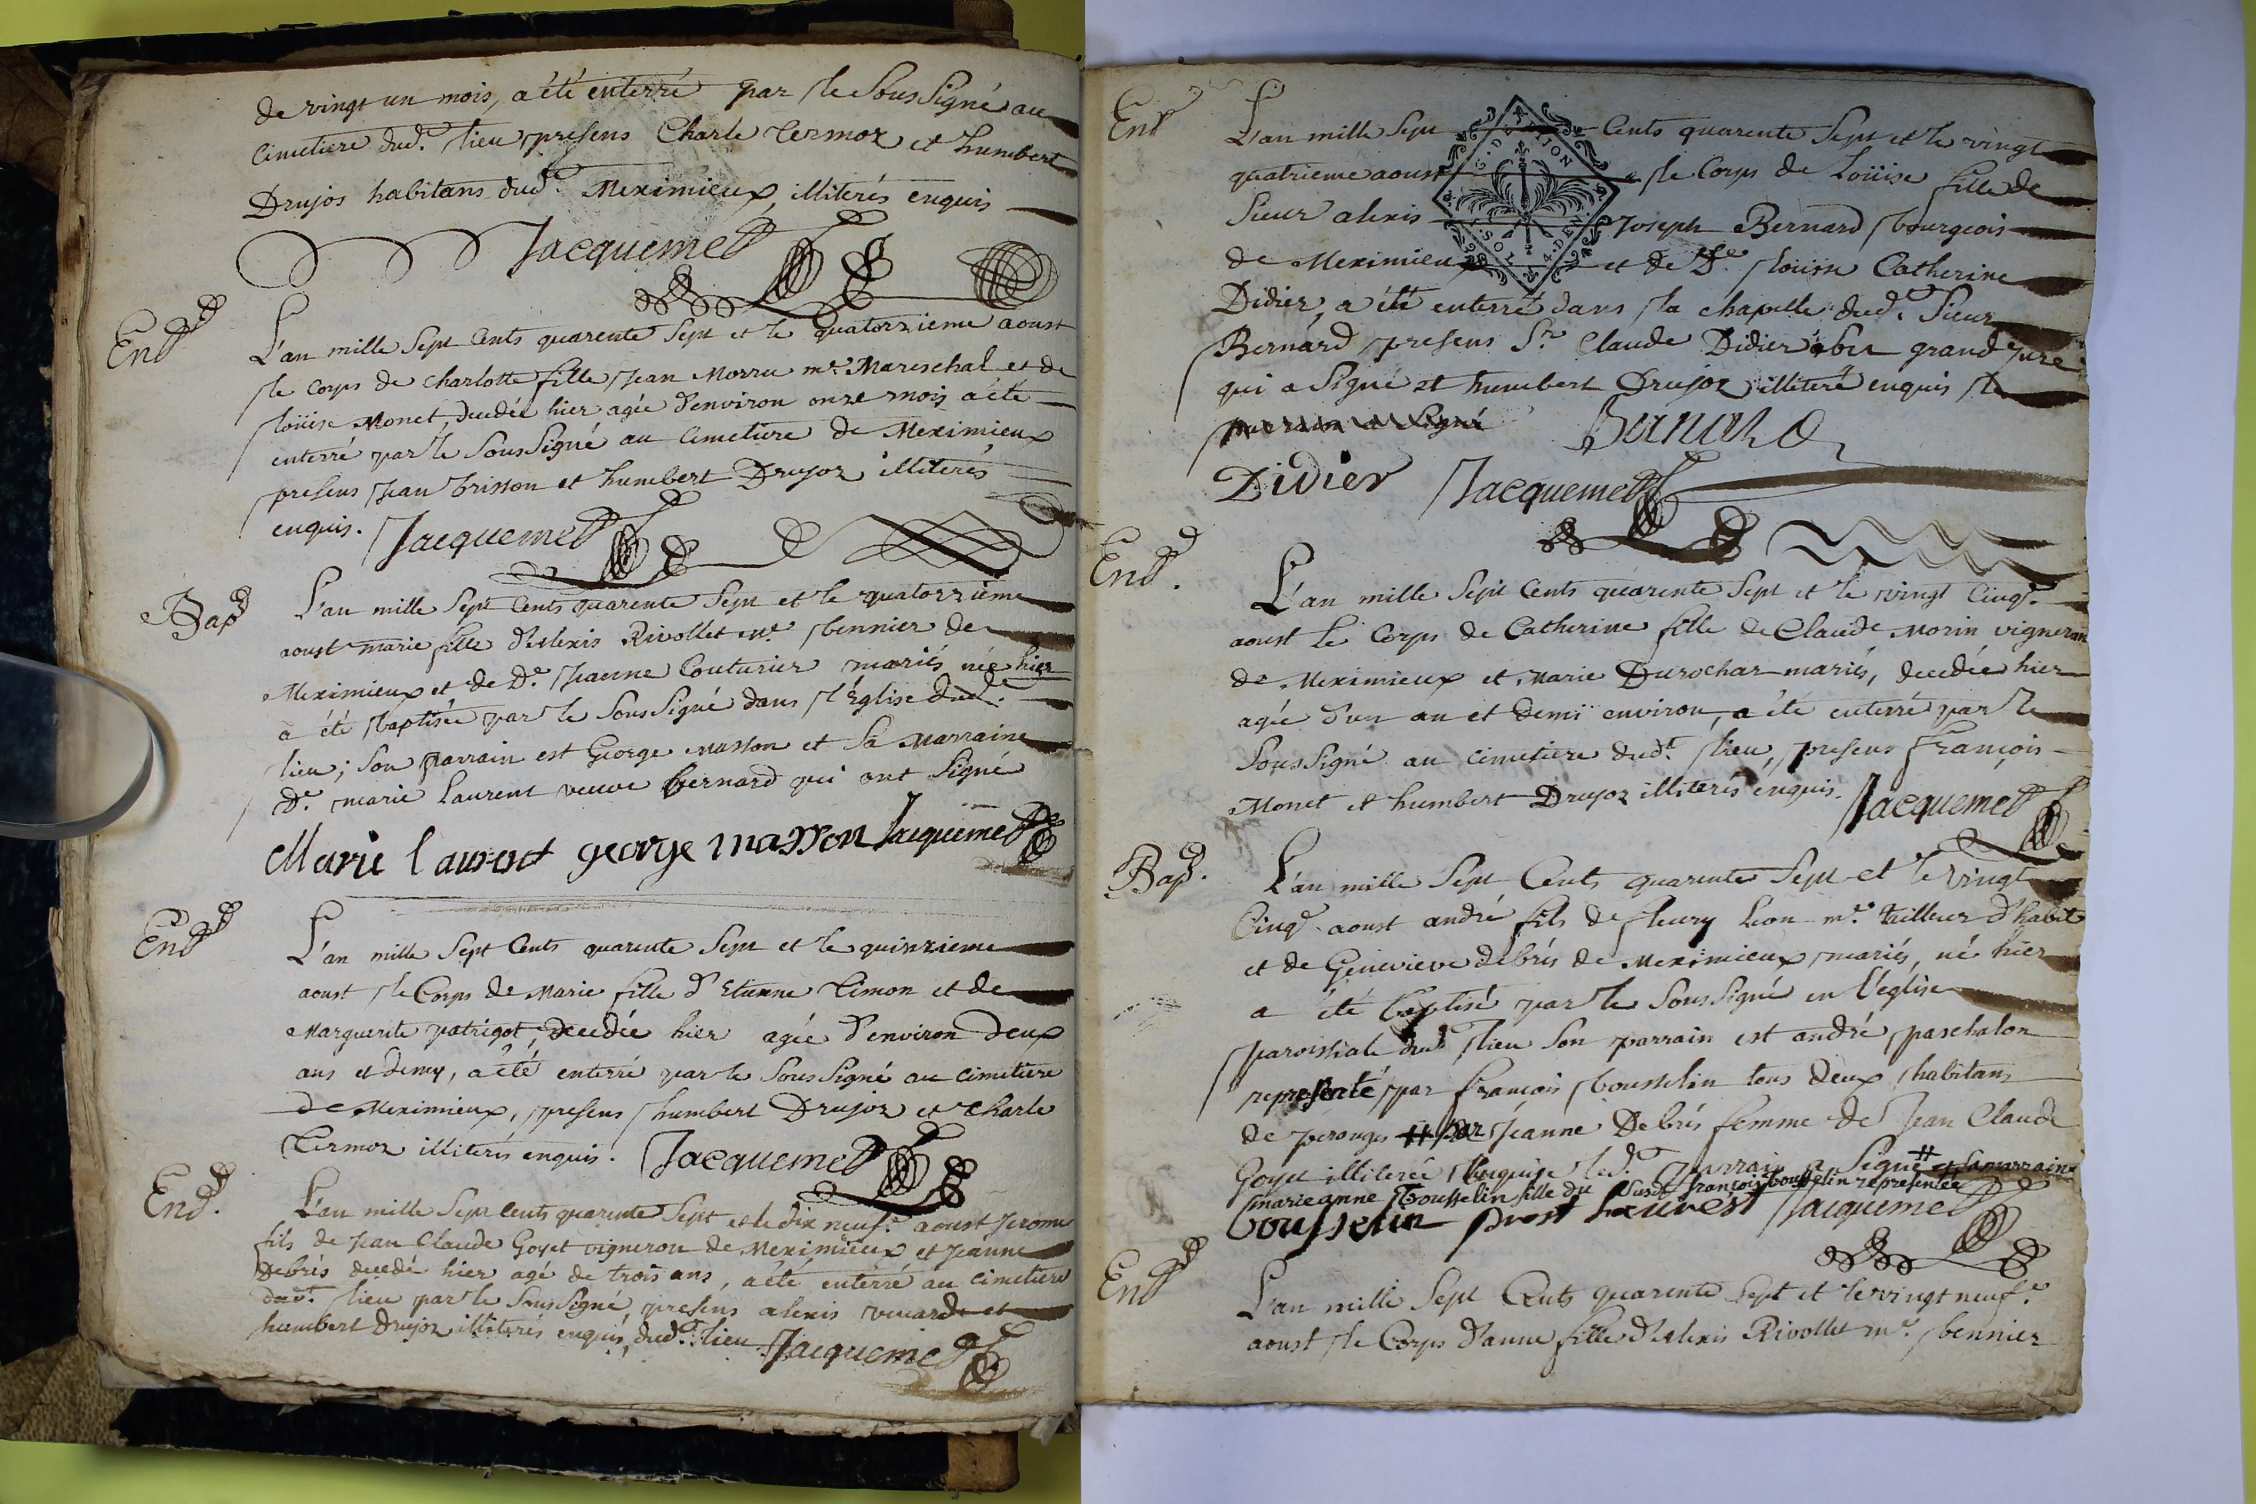 de vingt un mois, a été enterré par le Soussigné au
cimetiere dud.t lieu presens Charle Termoz et humbert
Drujos habitans dud.t Meximieux, illiterés enquis
Jacquemet
Ent
L'an mille Sept Cents quarente Sept et le quatorzieme aoust
le Corps de charlotte fille Jean Morru m.e Mareschal et de
Loüise Monet, decedée hier agée d'environ onze mois a été
enterré par le Soussigné au cimetiere de Meximieux
presens Jean brisson et humbert Drujoz illiterés
enquis. Jacquemet
Bap
L'an mille Sept Cents quarente Sept et le quatorzieme
aoust marie fille d'Alexis Rivollet m.e bennier de
Meximieux et de D.e Jeanne Couturier mariés née hier
a été baptisée par le Soussigné dans l'Église dud.t
lieu; Son parrain est George Masson et Sa Marraine
D.e marie Laurent veuve bernard qui ont Signé
Marie laurent george masson Jacquemet
Ent
L'an mille Sept Cents quarente Sept et le quinzieme
aoust le Corps de Marie fille d'Etienne Timon et de
Marguerite patrigot, decedée hier agée d'environ deux
ans et demy, a été enterré par le Soussigné au cimetiere
de Meximieux, presens humbert Drujoz et Charle
Termoz illiterés enquis. Jacquemet
Ent.
L'an mille Sept cents quarente Sept et le dix neuf.e aoust Jerome
fils de Jean Claude Goyet vigneron de Meximieux et Jeanne
Debris decedé hier agé de trois ans, a été enterré au cimetiere
dud.t lieu par le Soussigné presens alexis vuard et
humbert Drujoz illiterés enquis, dud.t lieu Jacquemet
Ent
L'an mille Sept Cents quarente Sept et le vingt
quatrieme aoust le Corps de Loüise fille de
Sieur alexis Joseph Bernard bourgeois
de Meximieux et de D.e Loüise Catherine
G.D. DIJON
SOL 4 DEN
Didier, a été enterré dans la chapelle dud.t Sieur
Bernard presens S.r Claude Didier grand pere
qui a Signé et humbert Drujoz illiteré enquis le
Bernard
Didier Jacquemet
Ent.
L'an mille Sept Cents quarente Sept et le vingt Cinq.e
aoust le Corps de Catherine fille de Claude Morin vigneron
de Meximieux et Marie Durochar mariés, decedée hier
agée d'un an et demi environ, a été enterré par le
Soussigné au cimetiere dud.t lieu, presens François
Monet et humbert Drujoz illiterés enquis. Jacquemet
Bap.
L'an mille Sept Cents quarente Sept et le vingt
Cinq.e aoust andré fils de fleury Leon m.e tailleur d'habit
et de Genevieve debris de Meximieux mariés, né hier
a été baptisé par le Soussigné en l'eglise
paroissiale dud.t lieu Son parrain est andré paschalon
representé par François bousselin tous deux habitans
de perouges # par Jeanne Debris femme de Jean Claude
Goyet illiterée enquise led.t parrain a Signé # et Sa marraine
marieanne bousselin fille du Susd.t françois bousselin representée
bousselin Jacquemet
Ent
L'an mille Sept Cents quarente Sept et le vingt neuf.e
aoust le Corps d'anne fille d'Alexis Rivollet m.e bennier